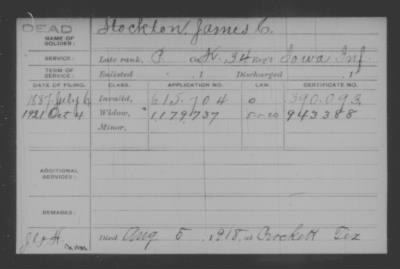 DEAD
NAME OF SOLDIER: Stockton, James C.
SERVICE: Late rank, P. Co. K, 34 Reg't Iowa Inf.
TERM OF SERVICE: Enlisted , 1 Discharged , 1
DATE OF FILING. CLASS. APPLICATION NO. LAW. CERTIFICATE NO.
1887 July 6 Invalid, 615,704 0 390,093
1921 Oct 4 Widow, 1,179,737 943388
Minor,
ADDITIONAL SERVICES:
REMARKS:
Died Aug 5, 1918, at Crockett Tex